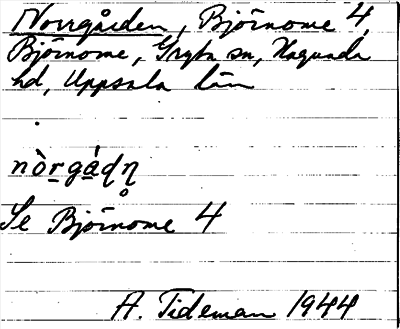 Norrgården, Björnome 4,
Björnome, Gryta sn, Hagunda
hd, Uppsala län
nòrgád̥ŋ
Se Björnome 4
A. Tideman 1944